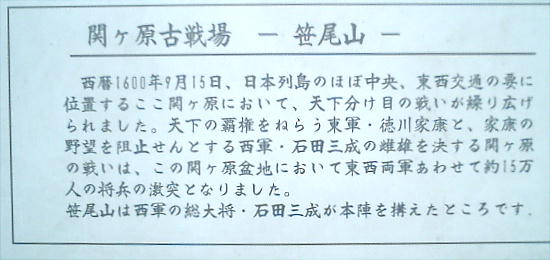 関ヶ原古戦場 － 笹尾山 －
西暦1600年9月15日、日本列島のほぼ中央、東西交通の要に
位置するここ関ヶ原において、天下分け目の戦いが繰り広げ
られました。天下の覇権をねらう東軍・徳川家康と、家康の
野望を阻止せんとする西軍・石田三成の雌雄を決する関ヶ原
の戦いは、この関ヶ原盆地において東西両軍あわせて約15万
人の将兵の激突となりました。
笹尾山は西軍の総大将・石田三成が本陣を構えたところです.